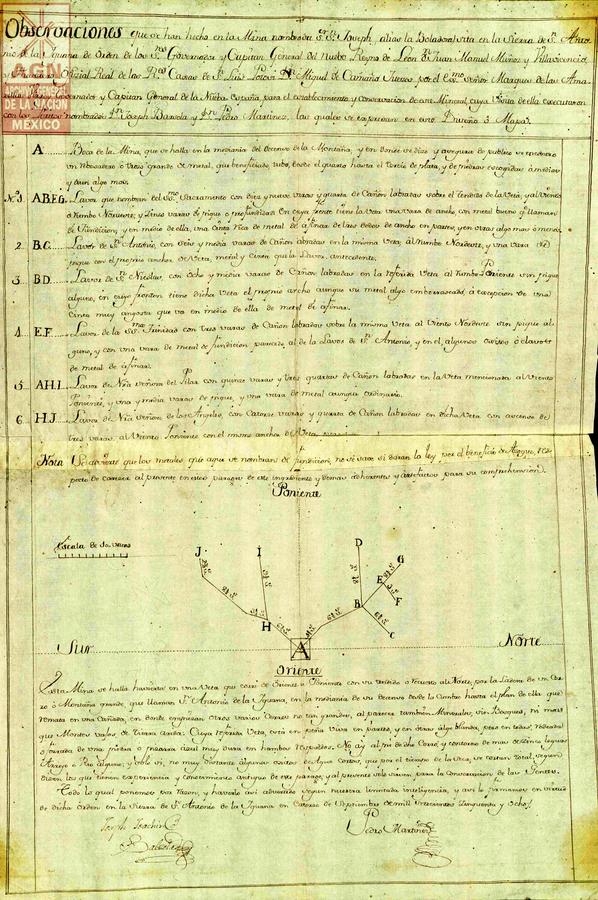 AGN
ARCHIVO GENERAL
DE LA NACIÓN
MEXICO
Observaciones que se han hecho en la Mina nombrada Sr. Sn. Joseph, alias la Boladora sita en la Sierra de Sn. Anto
nio de la Iguana de orden de los Sres. Governador y Capitan General del Nuebo Reyno de Leon Dn. Juan Manuel Muñoz y Villavicencio,
Oficial Real de las Rs. Caxas de Sn. Luis Potosi Dn. Miguel de por el Exmo. Señor Marques de las Ama
rillas Governador y Capitan General de la Nueba España para el establecimiento y conservacion de este Mineral, cuya vista de ella executaron
con los nombrados Dn. Joseph y Dn. Pedro Martinez, las quales se expresan en este Diseño ó Mapa.
A Boca de la Mina, que se halla en la mediania del decenso de la Montaña, y en donde se dize y asegura de publico se encontro
un rebosadero ó crestón grande de metal, que beneficiado, subo, desde el quarto hasta el tercio de plata, y de piedras escogidas á medias
y aun algo mas.
No. 1. A.B.E.G. Lavor que nombran del Smo. Sacramento con diez y nuebe varas y quarta de Cañon labradas sobre el tendido de la Veta, y al Viento
ó Rumbo Norueste; y varas de pique ó profundidad En cuyo frente tiene la Veta una vara de ancho con metal bueno q. llaman
de fundicion, y en medio de ella, una cinta rica de metal de afinar de dos dedos de ancho en partes, y en otras algo mas ó menos.
2 B.C. Lavor de Sn. Antonio, con siete y media varas de Cañon labradas en la misma veta, al Rumbo Nordeste, y una vara de
pique con el proprio ancho de Veta, metal y cinta que la Lavor antecedente.
3 B D Lavor de Sn. Nicolas, con ocho y media varas de Cañon labradas en la referida Veta al Rumbo Poniente sin pique
alguno, en cuyo frontón tiene dicha veta el proprio ancho aunque su metal algo emborrascado, á excepcion de una
cinta muy angosta que va en medio de ella de metal de afinar.
4 E.F. Lavor de la SSma. Trinidad con tres varas de Cañon labradas sobre la misma Veta al Viento Nordeste sin pique al
guno, y con una vara de metal de fundicion parecido al de la Lavor de Sn. Antonio, y en el, algunos ó clavos
de metal de afinar.
5 A H I Lavor de Nra. Señora del Pilar con quinze varas y tres quartas de Cañon labradas en la Veta mencionada al Viento
Poniente, y una y media varas de pique, y una vara de metal aunque ordinario.
6 H J Lavor de Nra. Señora de los Angeles, con Catorze varas y quarta de Cañon labradas en dicha Veta con ascenso de
tres varas al Viento Poniente con el mismo ancho de Veta
Nota Se advierte que los metales que aqui se nombran de fundicion, no se save si daran la ley por el beneficio de Azogue, res
pecto de carecer al presente en este parage de este ingrediente y demas adherentes y artefactos para su comprehencion
Poniente
Escala de 10 varas
J
I
D
G
E
F
B
C
H
A
Sur
Norte
Oriente
Esta Mina se halla havierta en una Veta que corre de Oriente á Poniente con su tendido ó recuesto al Norte, por la Ladera de un Cer
ro ó Montaña grande que llaman Sn. Antonio de la Iguana, en la mediania de su decenso desde la cumbre hasta el plan de ella que
remata en una Cañada, en donde empiesan otros varios Cerros no tan grandes, al parecer tambien Minerales, sin Bosques, ni mas
que Montes vajos de Tierra arida. Cuya referida Veta, está en peña Viva en partes, y en otras algo blanda, pero en todas, rodeada
ó forrada de una piedra ó pizarra azul muy dura en hambos respaldos. No ay al pie de dho Cerro, y contorno de mas de seis leguas
Arroyo ó Rio alguno, y solo si, no muy distante algunos ojitos de Agua cortos, que por el tiempo de la seca, se exsiten total, segun
dizen los que tienen experiencia y conocimiento antiguo de este parage, y al presente solo sirven para la Conservacion de las Gentes.
Todo lo qual ponemos por razon, y haverlo assi advertido segun nuestra limitada inteligencia, y assi lo firmamos en virtud
de dicha orden en la Sierra de Sn. Antonio de la Iguana en Catorze de Septiembre de mil setecientos cinquenta y ocho
Joseph Joachin
Pedro Martinez